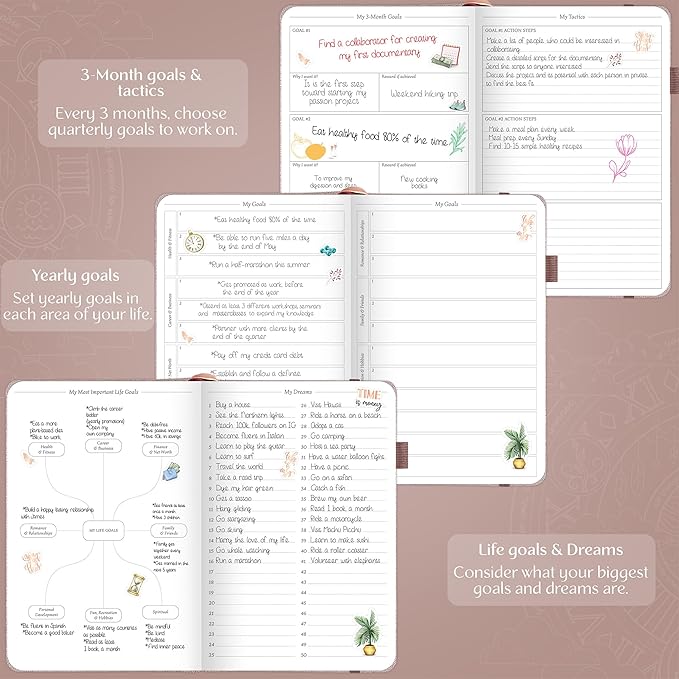 3-Month goals &
tactics
Every 3 months, choose
quarterly goals to work on.
My 3-Month Goals
GOAL #1
Find a collaborator for creating
my first documentary
Why I want it?
It is the first step
toward starting my
passion project
Reward if achieved
Weekend hiking trip
GOAL #2
Eat healthy food 80% of the time
Why I want it?
To improve my
digestion and
Reward if achieved
New cooking
books
My Tactics
GOAL #1 ACTION STEPS
Make a list of people who could be interested in
collaborating
Create a detailed script for the documentary
Send the script to anyone interested
Discuss the project and its potential with each person in private
to find the best fit
GOAL #2 ACTION STEPS
Make a meal plan every week
Meal prep every Sunday
Find 10-15 simple healthy recipes
Yearly goals
Set yearly goals in
each area of your life.
My Goals
Health & Fitness
1
*Eat healthy food 80% of the time
2
*Be able to run five miles a day
by the end of May
3
*Run a half-marathon this summer
Career & Business
1
*Get promoted at work before
the end of the year
2
*Attend at least 3 different workshops, seminars
and masterclasses to expand my knowledge
3
*Partner with more clients by the
end of the quarter
Net Worth
1
*Pay off my credit card debt
2
*Establish and follow a definite
My Goals
Romance & Relationships
1
2
3
Family & Friends
1
2
3
& Hobbies
1
2
My Most Important Life Goals
*Eat a more
plant-based diet
*Bike to work
Health
& Fitness
*Climb the career
ladder
(yearly promotions)
*Open my
own company
Career &
Business
*Be debt-free
*Have passive income
*Have 10k in savings
Finance
& Net Worth
*Build a happy lasting relationship
with James
Romance
& Relationships
MY LIFE GOALS
*See friends at least
once a month
*Have 3 children
Family
& Friends
*Family gets
together every
weekend
*Get married in the
next 5 years
Personal
Development
*Be fluent in Spanish
*Become a good baker
Fun, Recreation
& Hobbies
*Visit as many countries
as possible
*Read at least
1 book a month
Spiritual
*Be mindful
*Be kind
*Meditate
*Find inner peace
My Dreams
TIME
is money
1 Buy a house
2 See the Northern lights
3 Reach 100k followers on IG
4 Become fluent in Italian
5 Learn to play the guitar
6 Learn to surf
7 Travel the world
8 Take a road trip
9 Dye my hair green
10 Get a tattoo
11 Hang gliding
12 Go stargazing
13 Go skiing
14 Marry the love of my life
15 Go whale watching
16 Run a marathon
17
18
19
20
21
22
23
24
25
26 Visit Hawaii
27 Ride a horse on a beach
28 Adopt a cat
29 Go camping
30 Host a tea party
31 Have a water balloon fight
32 Have a picnic
33 Go on a safari
34 Catch a fish
35 Brew my own beer
36 Read 1 book a month
37 Ride a motorcycle
38 Visit Machu Picchu
39 Learn to make sushi
40 Ride a roller coaster
41 Volunteer with elephants
42
43
44
45
46
47
48
49
50
Life goals & Dreams
Consider what your biggest
goals and dreams are.